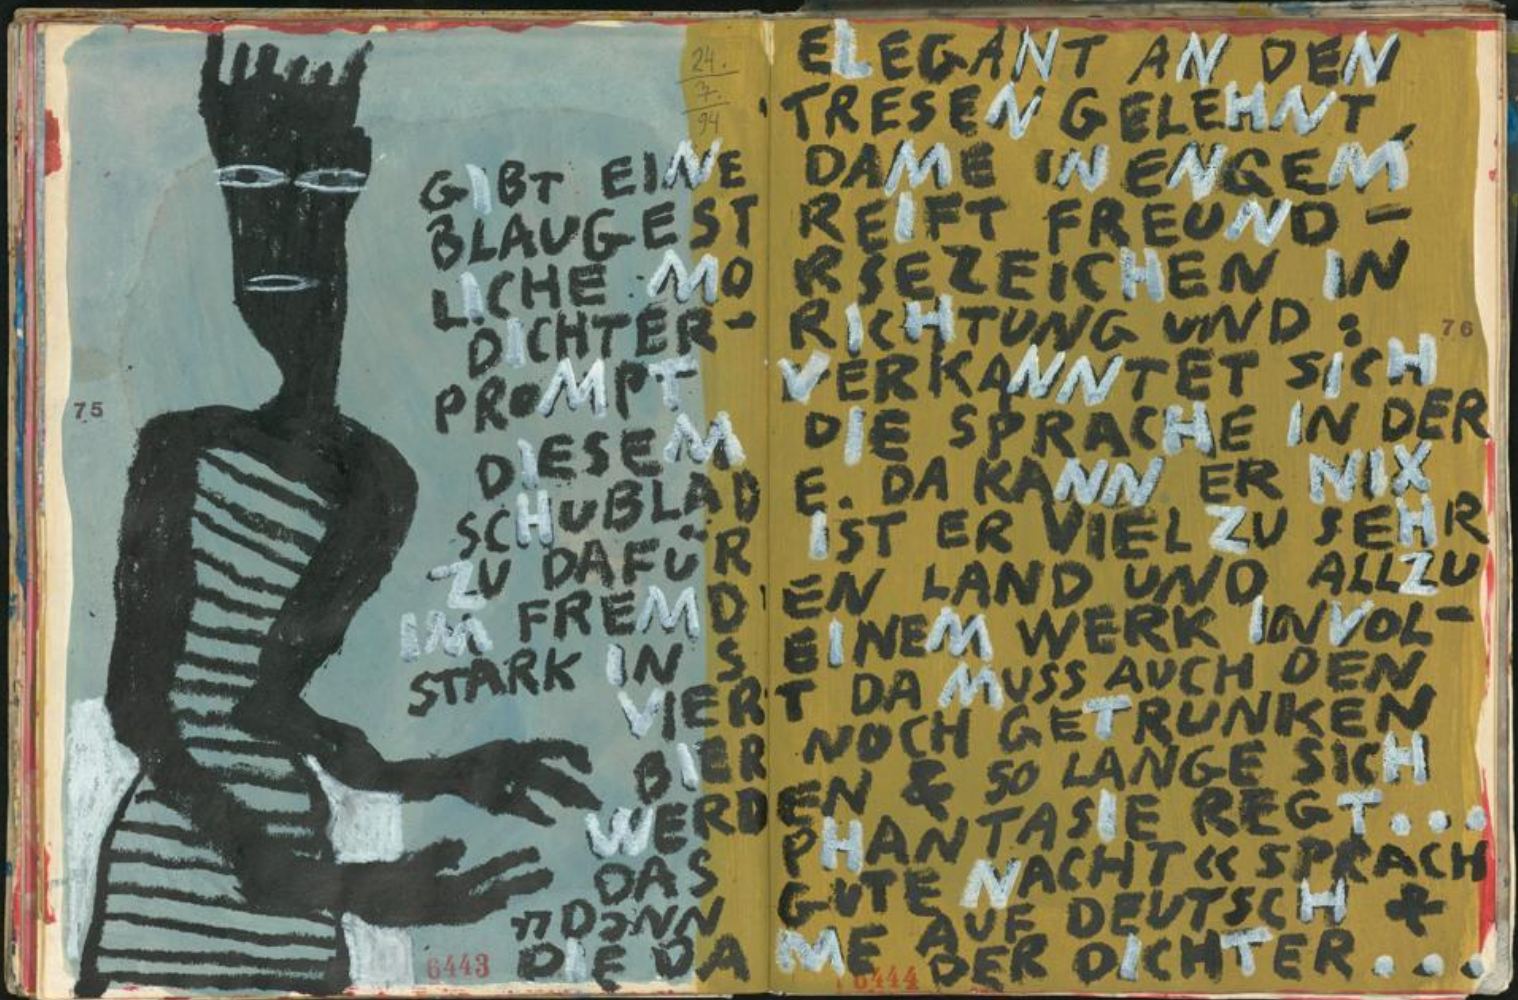 24.
7.
94
ELEGANT AN DEN
TRESEN GELEHNT,
GIBT EINE DAME IN ENGEM
BLAUGESTREIFT FREUND-
LICHE MORSEZEICHEN IN
DICHTER-RICHTUNG UND:
PROMPT VERKANNTET SICH
DIESEM DIE SPRACHE IN DER
SCHUBLADE. DA KANN ER NIX
ZU DAFÜR IST ER VIEL ZU SEHR
IM FREMDEN LAND UND ALLZU
STARK IN SEINEM WERK INVOL-
VIERT DA MUSS AUCH DEN
BIER NOCH GETRUNKEN
WERDEN & SO LANGE SICH
DAS PHANTASIE REGT...
»DANN GUTE NACHT« SPRACH
DIE DAME AUF DEUTSCH +
DER DICHTER...
75
76
6443
6444